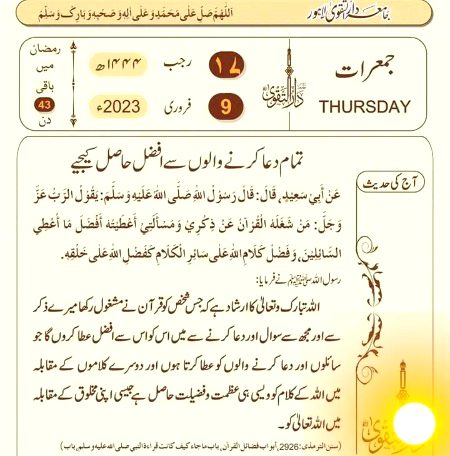 اَللّٰهُمَّ صَلِّ عَلٰى مُحَمَّدٍ وَّعَلٰى اٰلِهٖ وَصَحْبِهٖ وَبَارِكْ وَسَلِّمْ
جامعہ دارالتقویٰ لاہور
جمعرات
THURSDAY
دارالتقویٰ
۱۷ رجب ۱۴۴۴ھ
9 فروری 2023ء
رمضان
میں
باقی
43
دن
تمام دعا کرنے والوں سے افضل حاصل کیجیے
آج کی حدیث
عَنْ أَبِي سَعِيدٍ، قَالَ: قَالَ رَسُوْلُ اللهِ صَلَّى اللهُ عَلَيْهِ وَسَلَّمَ: يَقُوْلُ الرَّبُّ عَزَّ
وَجَلَّ: مَنْ شَغَلَهُ الْقُرْاٰنُ عَنْ ذِكْرِيْ وَمَسْأَلَتِيْ أَعْطَيْتُهُ أَفْضَلَ مَا أُعْطِي
السَّائِلِيْنَ، وَفَضْلُ كَلَامِ اللهِ عَلٰى سَائِرِ الْكَلَامِ كَفَضْلِ اللهِ عَلٰى خَلْقِهِ.
رسول اللہ ﷺ نے فرمایا:
اللہ تبارک وتعالیٰ کا ارشاد ہے کہ جس شخص کو قرآن نے مشغول رکھا میرے ذکر
اور مجھ سے سوال اور دعا کرنے سے میں اس کو اس سے افضل عطا کروں گا جو
سائلوں اور دعا کرنے والوں کو عطا کرتا ہوں اور دوسرے کلاموں کے مقابلہ
میں اللہ کے کلام کو ویسی ہی عظمت و فضیلت حاصل ہے جیسی اپنی مخلوق کے مقابلہ
میں اللہ تعالیٰ کو۔
(سنن الترمذی: 2926، أبواب فضائل القرآن، باب ما جاء كيف كانت قراءة النبي صلى الله عليه وسلم، باب)